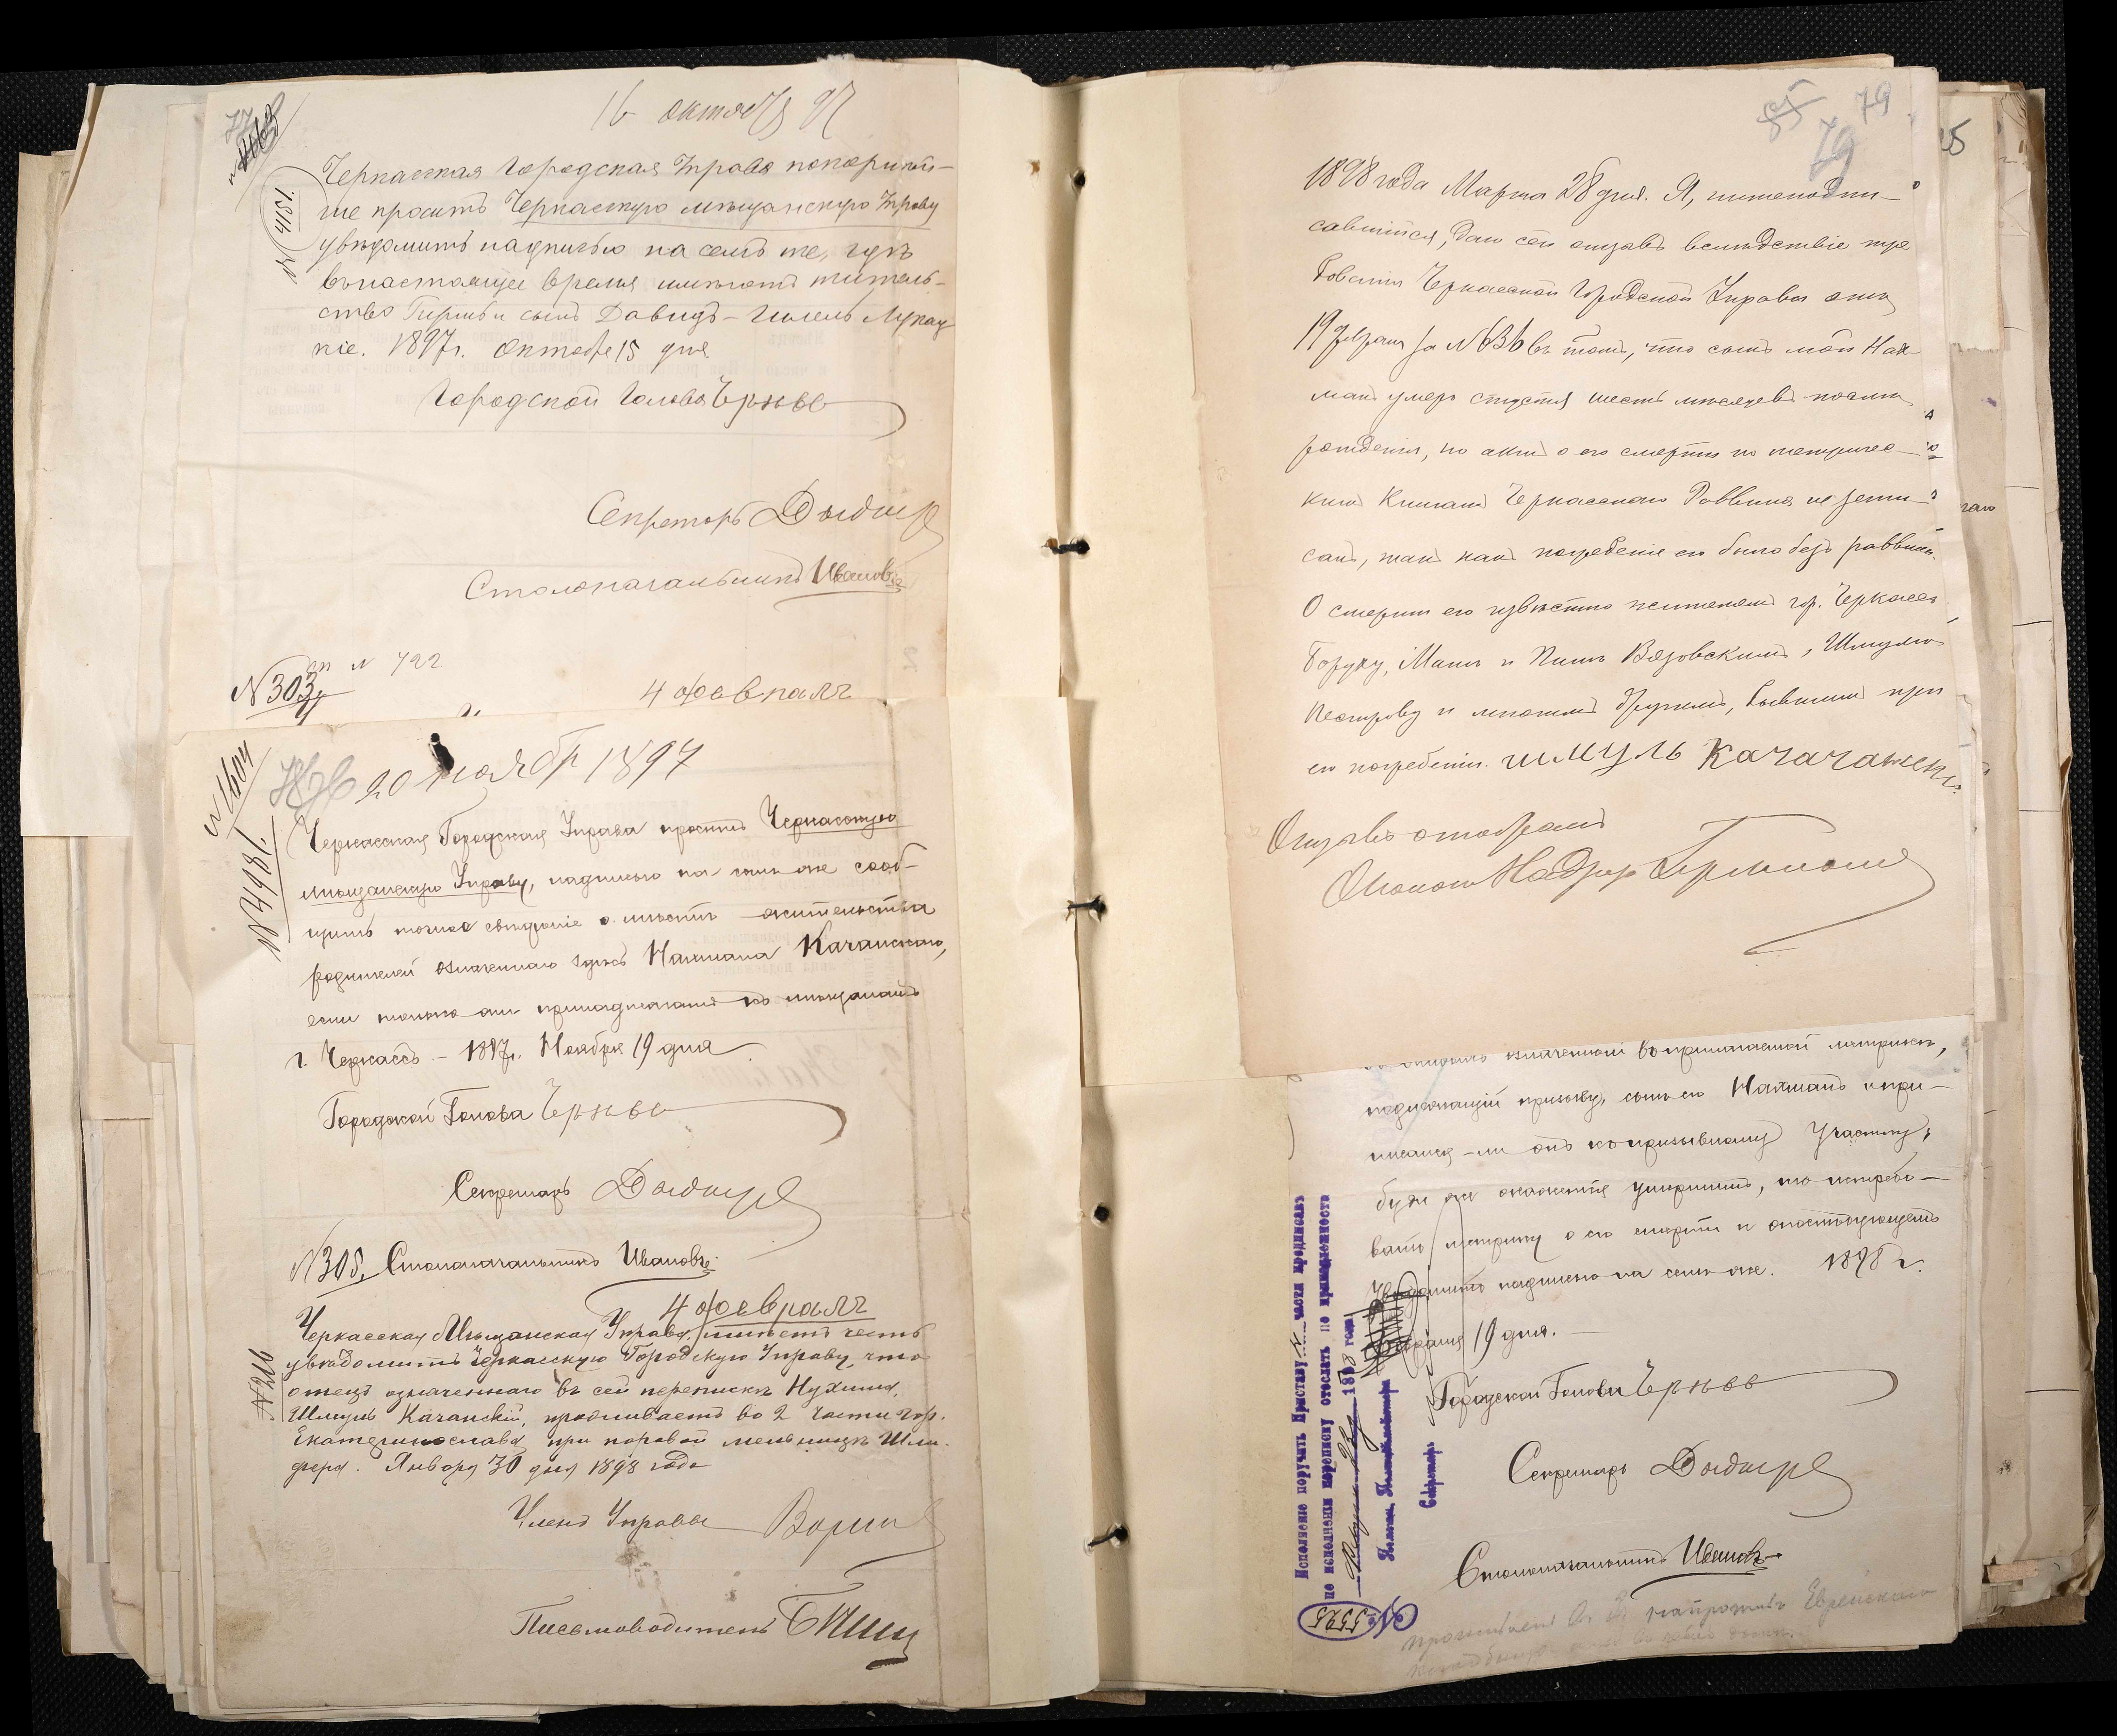 16 октября 97
77
№ 4151.
Черкасская Городская Управа покорнѣй-
ше проситъ Черкасскую мѣщанскую Управу
увѣдомить надписью на семъ же, гдѣ
въ настоящее время имѣютъ житель-
ство Гершъ и сынъ Давидъ-
1897 г. Октября 15 дня
Городской Голова
Секретарь
Столоначальникъ Ивановъ
№ 303
№ 722
4 февраля
№ 1604
20 ноября 1897
№ 4981.
Черкасская Городская Управа проситъ Черкасскую
мѣщанскую Управу, надписью на семъ же сооб-
щить точное свѣдѣніе о мѣстѣ жительства
родителей означеннаго здѣсь Нахмана Качанскаго,
если только они принадлежатъ къ мѣщанамъ
г. Черкассъ. – 1897 г. Ноября 19 дня
Городской Голова
Секретарь
№ 305. Столоначальникъ Ивановъ
4 февраля
№ 216
Черкасская Мѣщанская Управа имѣетъ честь
увѣдомить Черкасскую Городскую Управу, что
отецъ означеннаго въ сей перепискѣ Нухима,
Шмуль Качанскій, проживаетъ во 2 части гор.
Екатеринослава при паровой мельницѣ Шли-
фера. Января 30 дня 1898 года
Членъ Управы
Письмоводитель
85 79
79
1898 года Марта 28 дня. Я, нижеподпи-
савшійся, даю сей отзывъ вслѣдствіе тре
бованія Черкасской Городской Управы отъ
19 февраля за № 636 въ томъ, что сынъ мой Нах-
манъ умеръ спустя шесть мѣсяцевъ послѣ
рожденія, но актъ о его смерти по метричес-
кимъ книгамъ Черкасскаго Раввина не запи-
санъ, такъ какъ погребеніе его было безъ раввина.
О смерти его извѣстно жителямъ гор. Черкассъ
Боруху, Машѣ и Пинѣ Вязовскимъ, Шмулю
и многимъ другимъ, бывшимъ при
его погребеніи. шмуль
Отзывъ отобралъ
Околот. Надзир.
означенной въ прилагаемой метрикѣ,
подлежащій призыву, сынъ его Нахманъ и при-
писанъ-ли онъ къ призывному участку,
буде же окажется умершимъ, то истребо-
вать метрику о его смерти и о послѣдующемъ
увѣдомить надписью на семъ же. 1898 г.
Февраля 19 дня.
Городской Голова
Секретарь
Столоначальникъ Ивановъ
Исполненіе поручить Приставу части предписавъ
по исполненіи переписку отослать по принадлежности
1898 года
Секретарь
№ 5595